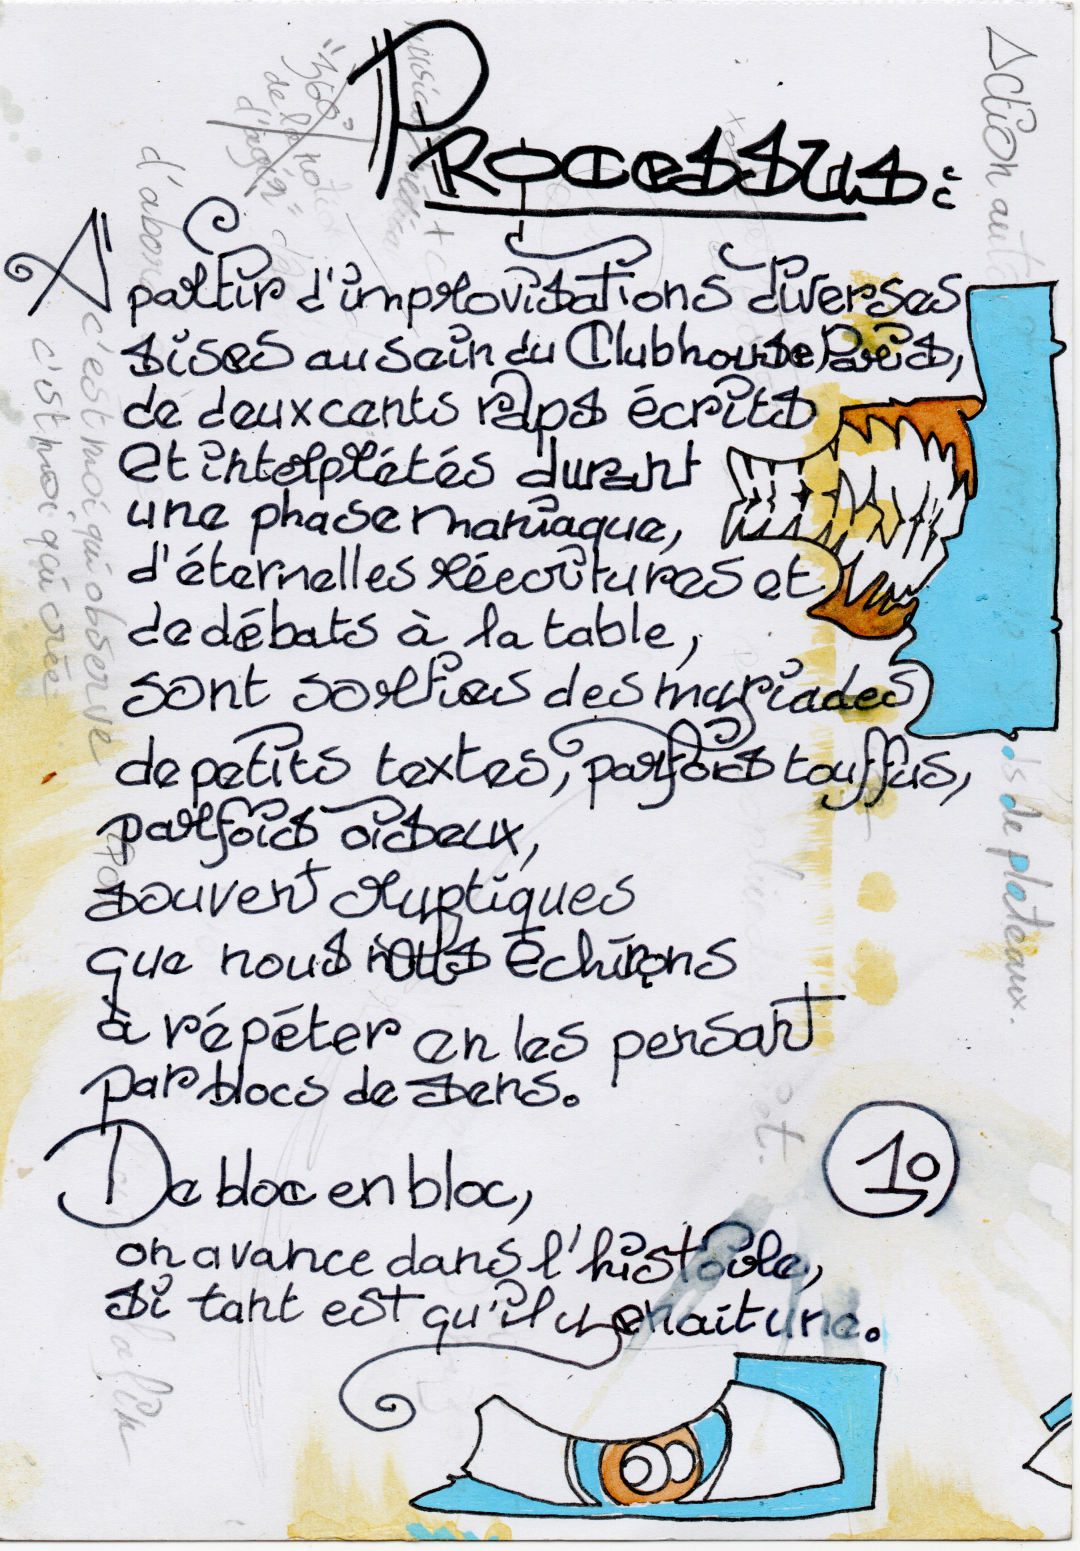 Processus :
A partir d'improvisations diverses
sises au sein du Clubhouse Paris,
de deux cents raps écrits
et interprétés durant
une phase maniaque,
d'éternelles réécritures et
de débats à la table,
sont sorties des myriades
de petits textes, parfois touffus,
parfois oiseux,
souvent elliptiques
que nous nous échinons
à répéter en les pensant
par blocs de sens.
De bloc en bloc,
on avance dans l'histoire,
si tant est qu'il y en ait une.
10
Action
ls de plateaux.
d'abord
c'est moi qui observe
c'est moi qui crée
"360°
de la
et.